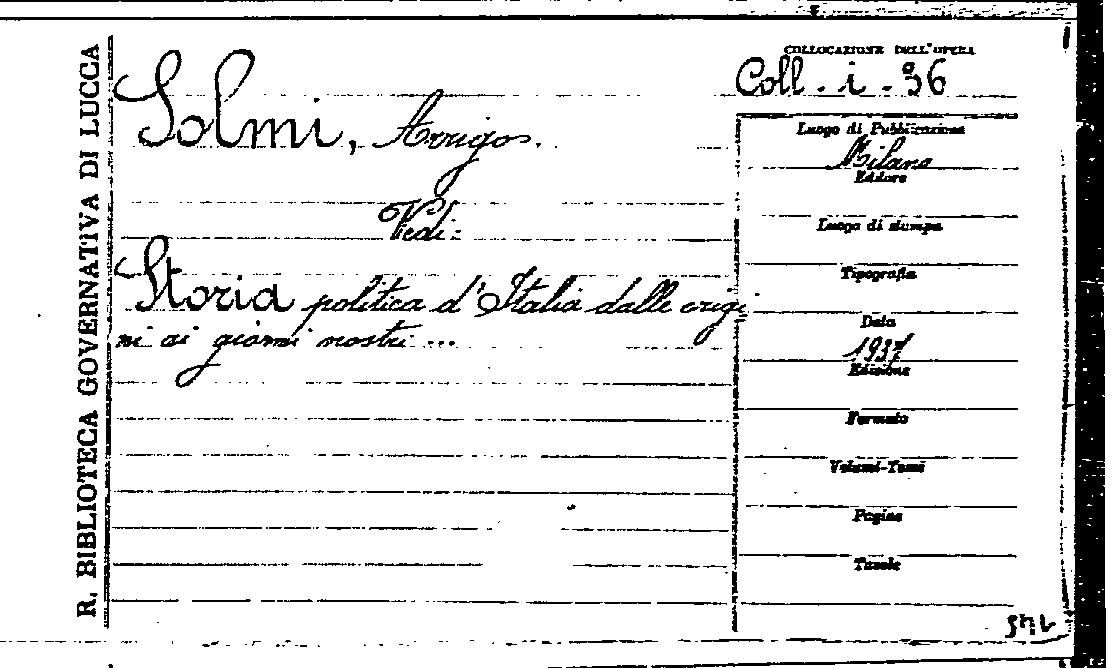 R. BIBLIOTECA GOVERNATIVA DI LUCCA
Solmi, Arrigo.
Vedi:
Storia politica d'Italia dalle origi
ni ai giorni nostri ...
COLLOCAZIONE DELL'OPERA
Coll. i. 36
Luogo di Pubblicazione
Milano
Editore
Luogo di stampa
Tipografia
Data
1937
Edizione
Formato
Volumi-Tomi
Pagine
Tavole